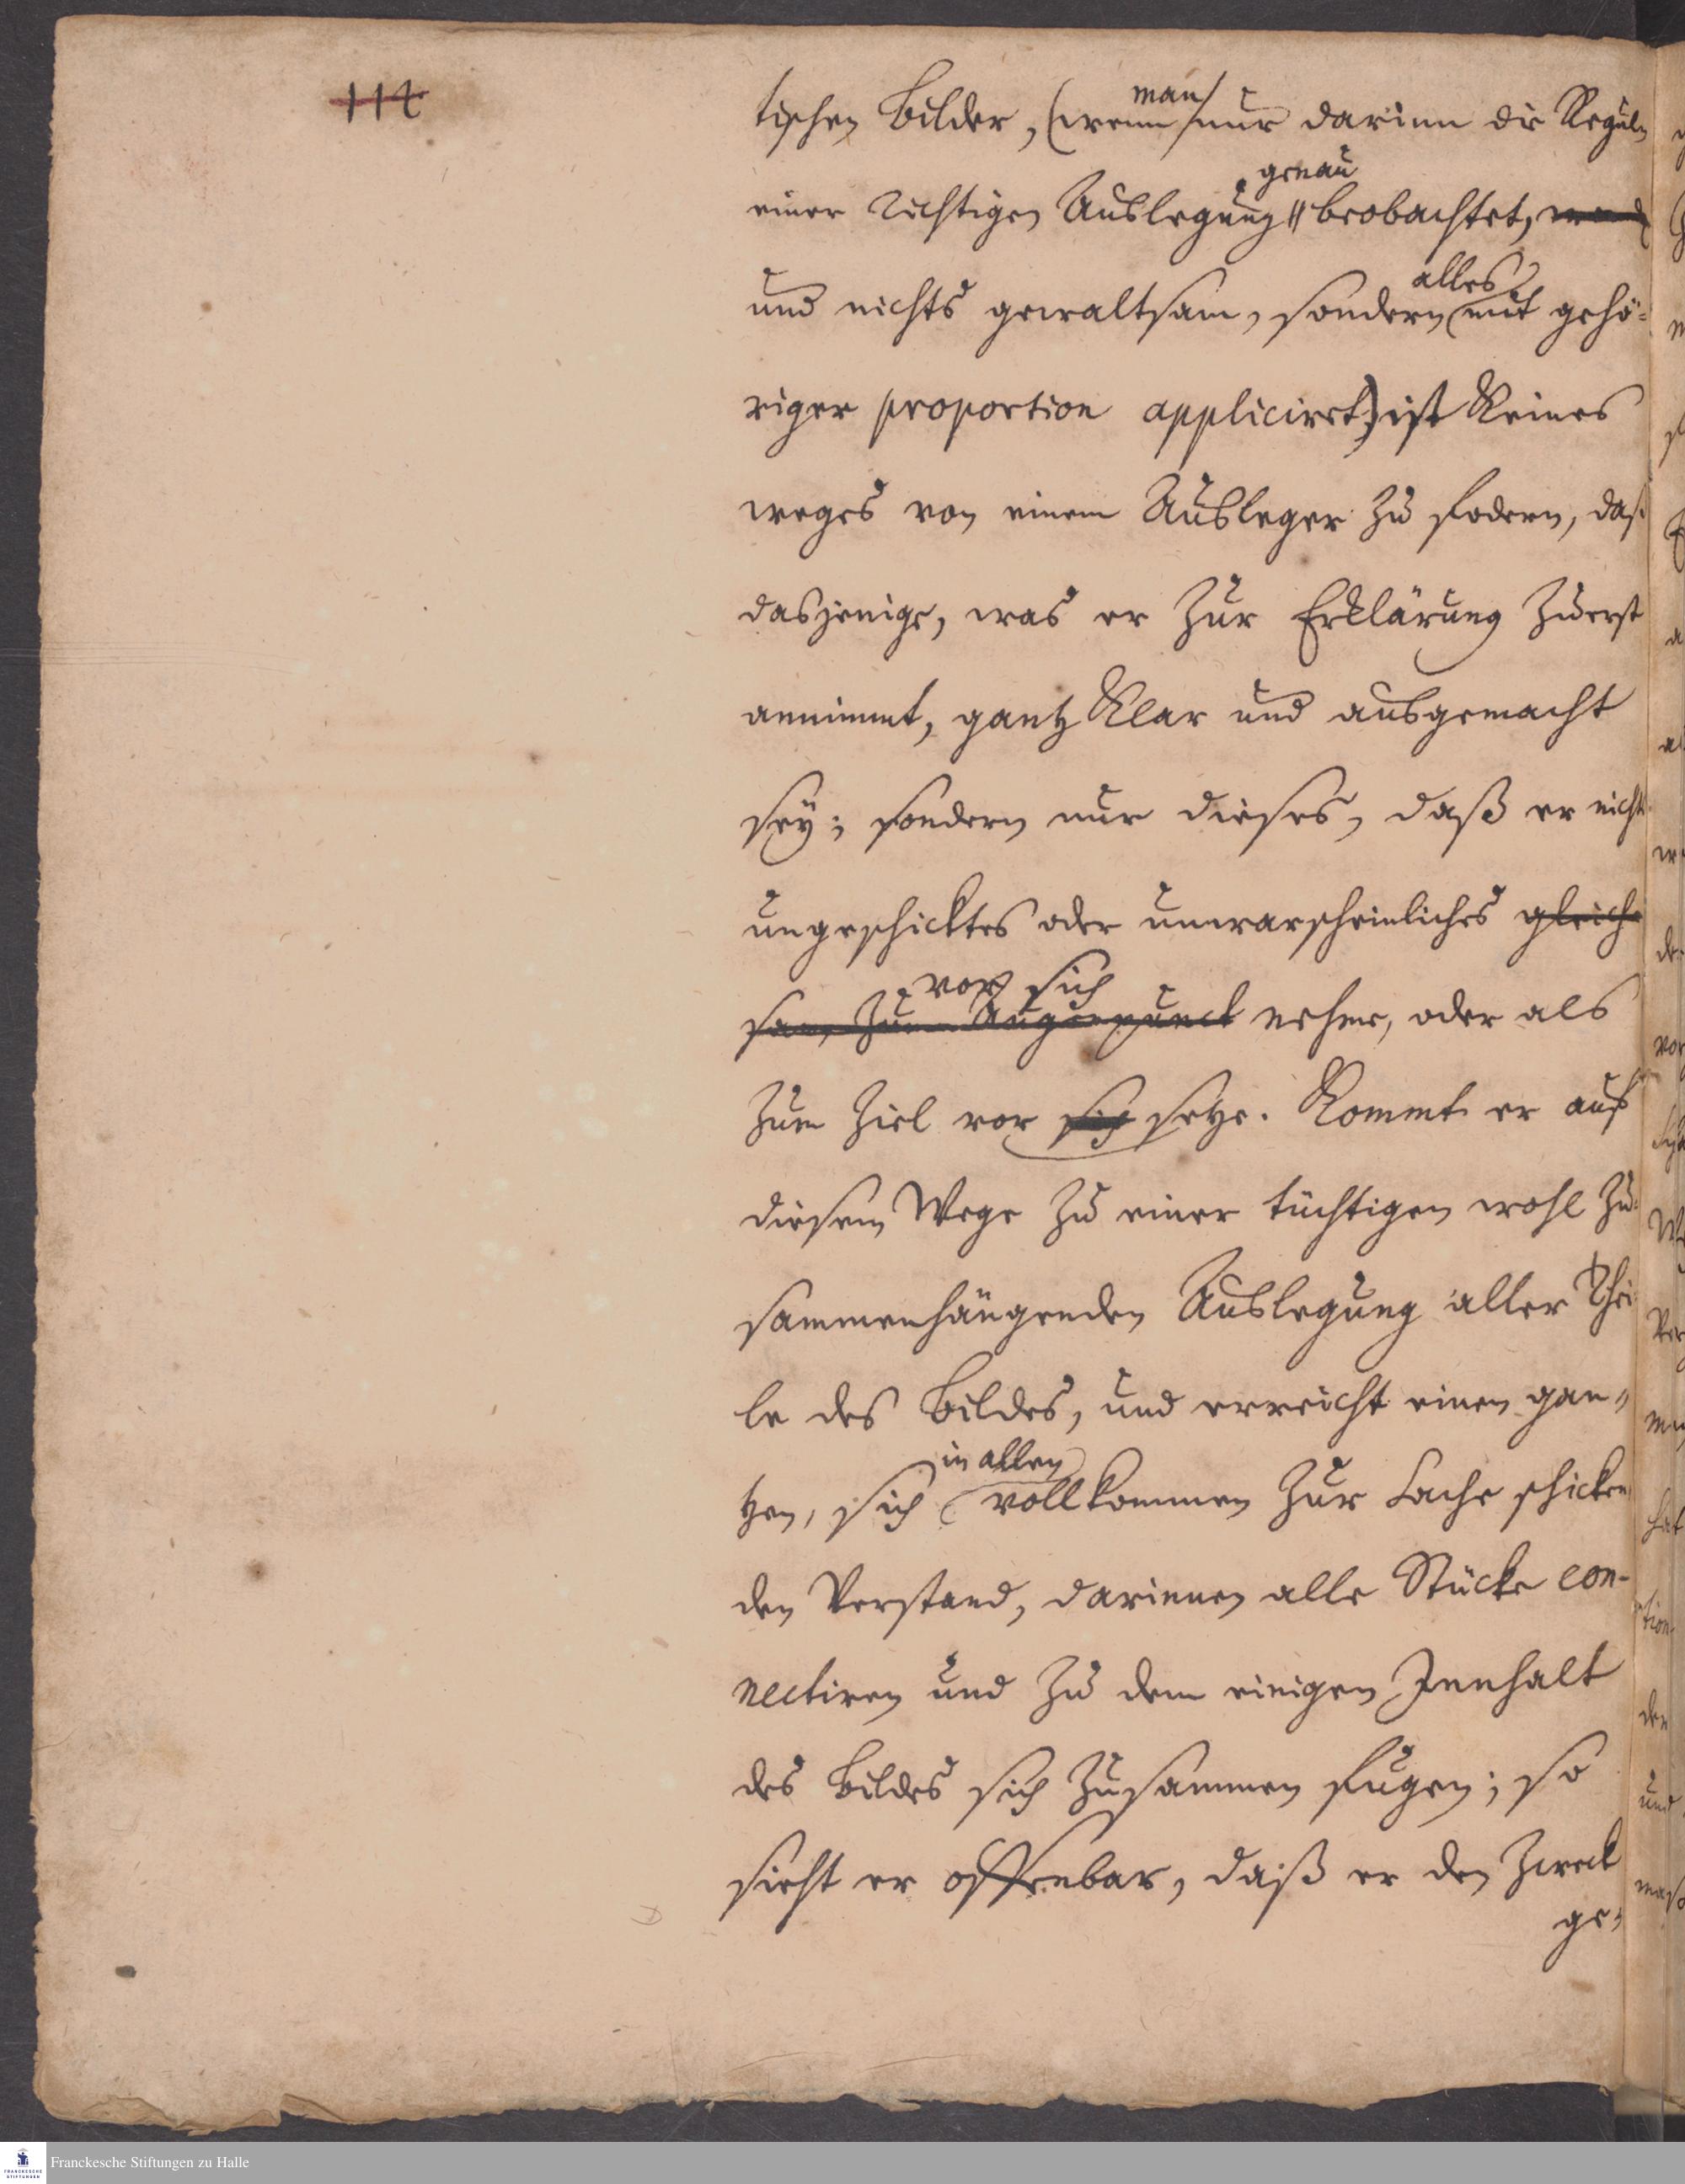 114
tischen Bilder, (wenn man nur darinn die Reguln
einer richtigen Auslegung genau beobachtet,
und nichts gewaltsam, sondern alles mit gehö-
riger proportion applicirt) ist keines
weges von einem Ausleger zu fodern, daß
dasjenige, was er zur Erklärung zuerst
annimmt, gantz klar und ausgemacht
sey; sondern nur dieses, daß er nichts
ungeschicktes oder unwarscheinliches gleich
sam zum Augenpunct vor sich nehme, oder als
zum Ziel vor sich setze. Kommt er auf
diesem Wege zu einer tüchtigen wohl zu-
sammenhängenden Auslegung aller Thei
le des Bildes, und erreicht einen gan-
tzen, sich in allen vollkommen zur Sache schicken
den Verstand, darinnen alle Stücke con-
nectiren und zu dem einigen Innhalt
des Bildes sich zusammen fugen; so
sieht er offenbar, daß er den Zweck
ge-
Franckesche Stiftungen zu Halle